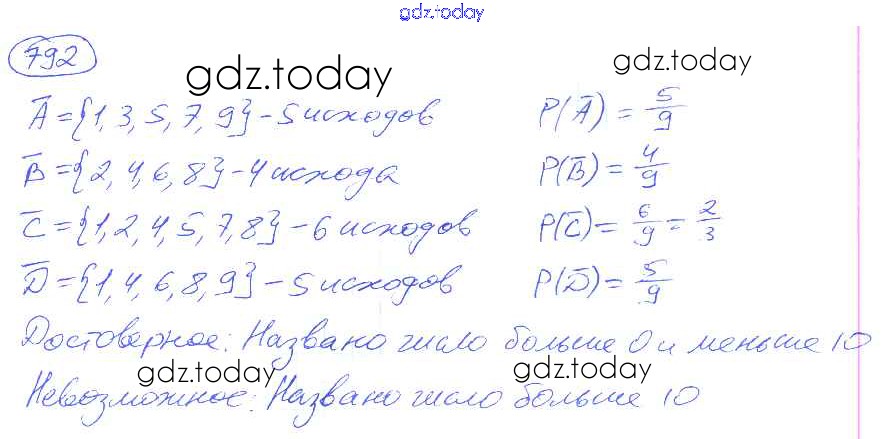 gdz.today
792
gdz.today gdz.today
A̅ = {1, 3, 5, 7, 9} - 5 исходов P(A̅) = 5/9
B̅ = {2, 4, 6, 8} - 4 исхода P(B̅) = 4/9
C̅ = {1, 2, 4, 5, 7, 8} - 6 исходов P(C̅) = 6/9 = 2/3
D̅ = {1, 4, 6, 8, 9} - 5 исходов P(D̅) = 5/9
Достоверное: Названо число больше 0 и меньше 10
gdz.today gdz.today
Невозможное: Названо число больше 10